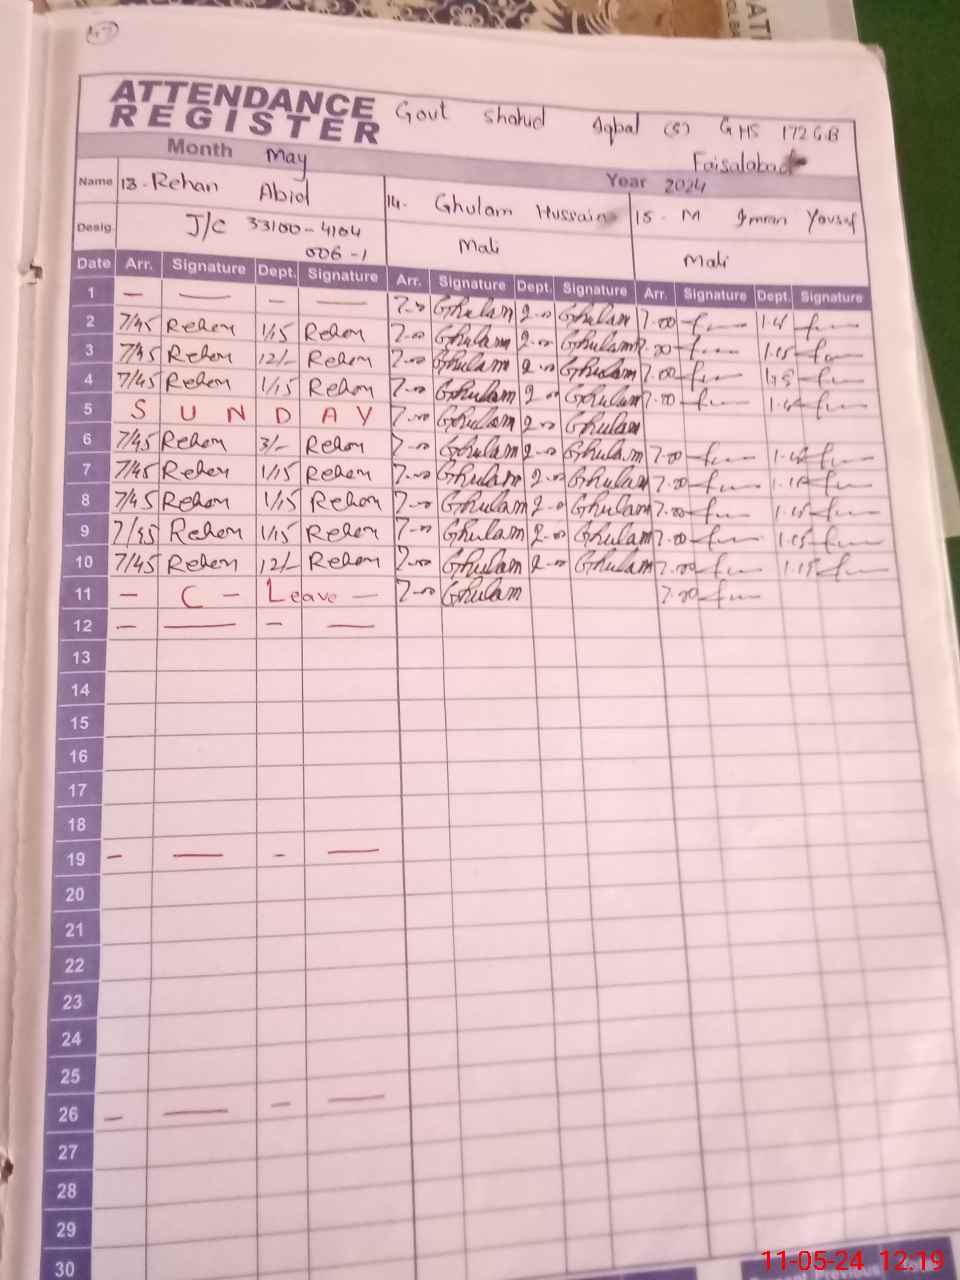 47
ATTENDANCE REGISTER
Govt Shahid Iqbal (S) GHS 172 GB
Faisalabad
Month May Year 2024
Name 13. Rehan Abid 14. Ghulam Hussain 15. M Imran Yousaf
Desig. J/C 33100-4104 006-1 Mali Mali
Date Arr. Signature Dept. Signature Arr. Signature Dept. Signature Arr. Signature Dept. Signature
1 — — — — 7-00 Ghulam 2-00 Ghulam 7.00
2 7/45 Rehan 1/15 Rehan 7-00 Ghulam 2-00 Ghulam 7.00 1.15
3 7/45 Rehan 12/- Rehan 7-00 Ghulam 2-00 Ghulam 7.00
4 7/45 Rehan 1/15 Rehan 7-00 Ghulam 2-00 Ghulam 7.00
5 S U N D A Y 7-00 Ghulam 2-00 Ghulam
6 7/45 Rehan 3/- Rehan 7-00 Ghulam 2-00 Ghulam 7.00
7 7/45 Rehan 1/15 Rehan 7-00 Ghulam 2-00 Ghulam 7.00
8 7/45 Rehan 1/15 Rehan 7-00 Ghulam 2-00 Ghulam 7.00 1.15
9 7/45 Rehan 1/15 Rehan 7-00 Ghulam 2-00 Ghulam 7.00 1.15
10 7/45 Rehan 12/- Rehan 7-00 Ghulam 2-00 Ghulam 7.00 1.15
11 — C — Leave — 7-00 Ghulam 7.00
12 — — — —
13
14
15
16
17
18
19 — — — —
20
21
22
23
24
25
26 — — — —
27
28
29
30
11-05-24 12:19